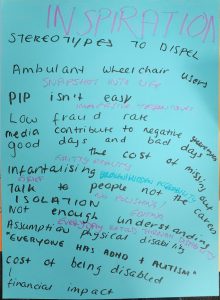 INSPIRATION
STEREOTYPES TO DISPEL
Ambulant wheelchair users
SNAPSHOT INTO LIFE
PIP isn't easy
Low fraud rate
media contribute to negative
good days and bad days
the cost of missing out
GRITTY REALITY
Infantalising
Talk to people not the carer
ISOLATION
NO POLISHING!
Not enough understanding
Assumption physical disability
"EVERYONE HAS ADHD + AUTISM"
cost of being disabled
financial impact